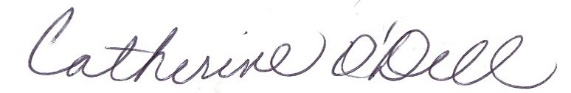 Catherine O'Dell